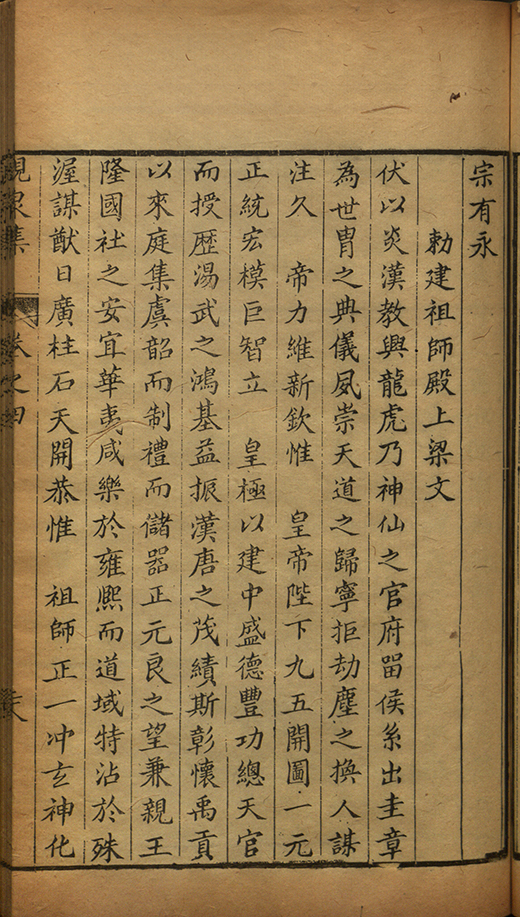 宗有永
勅建祖師殿上梁文
伏以炎漢教興龍虎乃神仙之官府畱侯系出圭章
為世胄之典儀夙崇天道之歸寧拒劫塵之換人謀
注久　帝力維新欽惟　皇帝陛下九五開圖一元
正統宏模巨智立　皇極以建中盛德豐功總天官
而授歷湯武之鴻基益振漢唐之茂績斯彰懷禹貢
以來庭集虞韶而制禮而儲器正元良之望兼親王
隆國社之安宜華夷咸樂於雍熈而道域特沾於殊
渥謀猷日廣柱石天開恭惟　祖師正一冲玄神化
峴泉集　卷之四